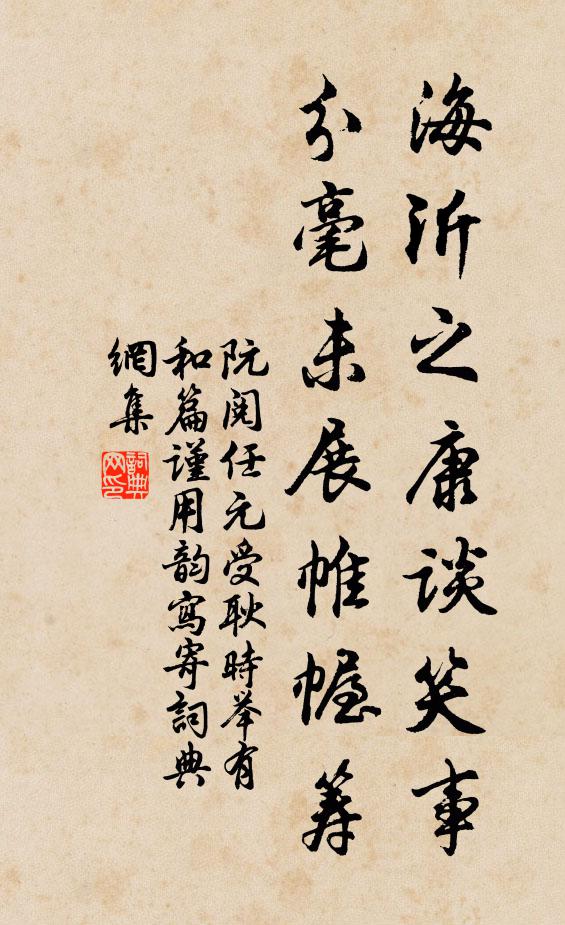 海沂之康谈笑事
分毫未展帷幄筹
阮阅任元受耿時举有
和篇谨用韵寫寄詞典
網集
詞典网印